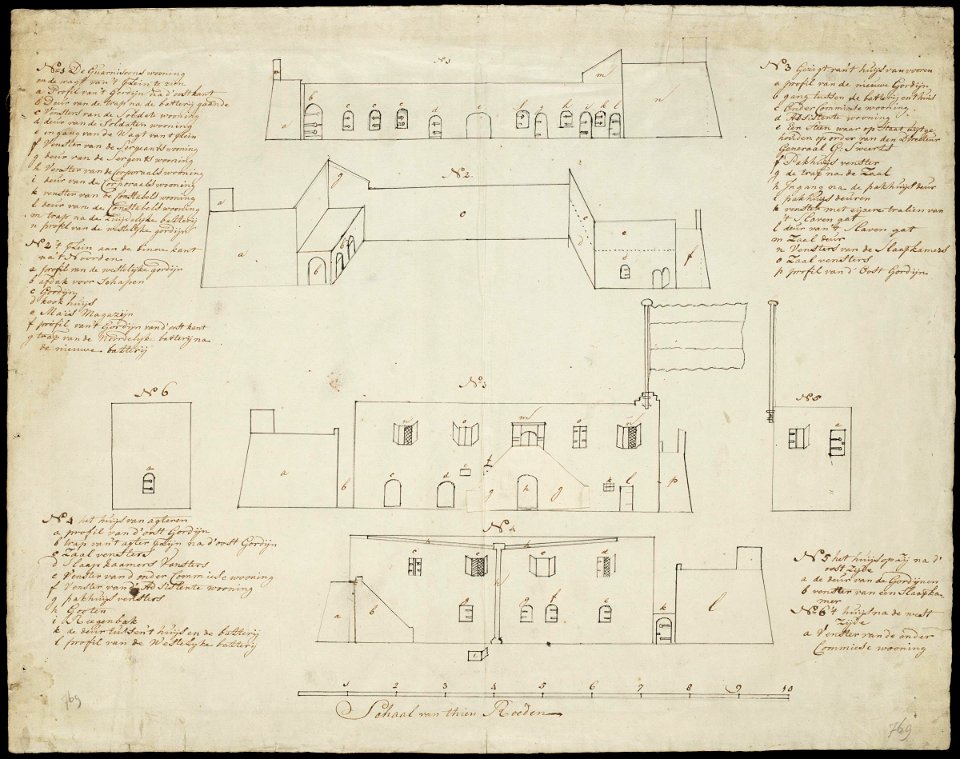 No 1 De Guarnisoens wooning
en de wagt van 't Plein te zien
a Profil van 't Gordijn na d'oost kant
b Deur van de trap na de batterij gaande
c Vensters van de Soldate wooning
d deur van de Soldaten wooning
e ingang van de Wagt van 't plein
f Venster van de Sergiants wooning
g deur van de Sergents wooning
h Venster van de Corporaals wooning
i deur van de Corporaals wooning
k venster van de Constabels wooning
l deur van de Constabels wooning
m trap na de Zuijdelijke batterij
n profil van de westelijke gordijn
No 2 't Plein aan de binne kant
na 't Noorden
a profil van de westelijke gordijn
b afdak voor Schapen
c Gordijn
d kook huijs
e Mais Magazijn
f profil van 't Gordijn van d'oost kant
g trap van de Noordelijke batterij na
de nieuwe batterij
No 3 Gezigt van 't huijs van vooren
a profil van de nieuwe Gordijn
b gang tussen de batterij en 't huis
c Onder Commiese wooning
d Adsistente wooning
e Een Steen waar op Staat uytge
houden op order van den Directeur
Generaal G: Sweerts
f Pakhuijs venster
g de trap na de Zaal
h Ingang na de pakhuijs deur
i pakhuijs deuren
k venster met eijzere tralien van
't Slaven gat
l deur van 't Slaven gat
m Zaal deur
n Vensters van de Slaapkamers
o Zaal vensters
p profil van d' Oost Gordijn
No 1
No 2
No 3
No 6
No 5
No 4 het huijs van agteren
a profil van d'oost Gordijn
b trap van 't agter Plein na d'oost Gordijn
c Zaal vensters
d Slaap kaamers Vensters
e Venster van d'onder Commiese wooning
f Venster van d'Adsistente wooning
g pakhuijs vensters
h Gooten
i Reegenbak
k de deur tussen 't huijs en de batterij
l profil van de Westelijke batterij
No 4
No 5 het huijs op zij na d'
oost Zijde
a de deur van de Gordijnen
b venster van een Slaapka
mer
No 6 't huijs na de west
Zijde
a Venster van de onder
Commiese wooning
1 2 3 4 5 6 7 8 9 10
Schaal van thien Roeden
769
769